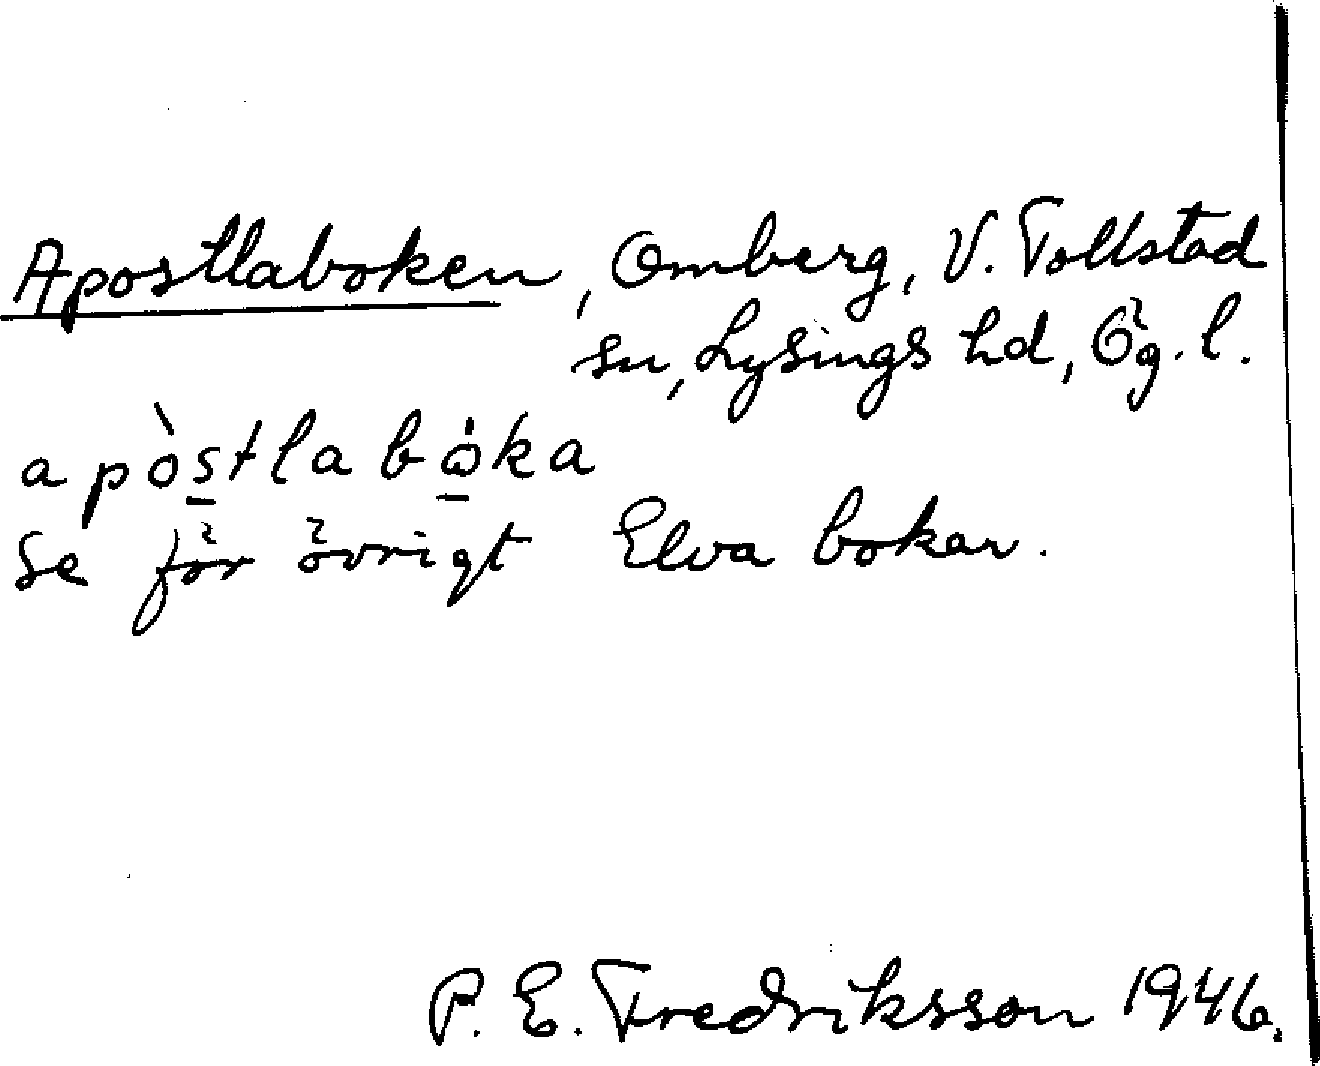 Apostlaboken, Omberg, V. Tollstad
sn, Lysings hd, Ög. l.
apòstlabo̊ka
Se för övrigt Elva bokar.
P. E. Fredriksson 1946.